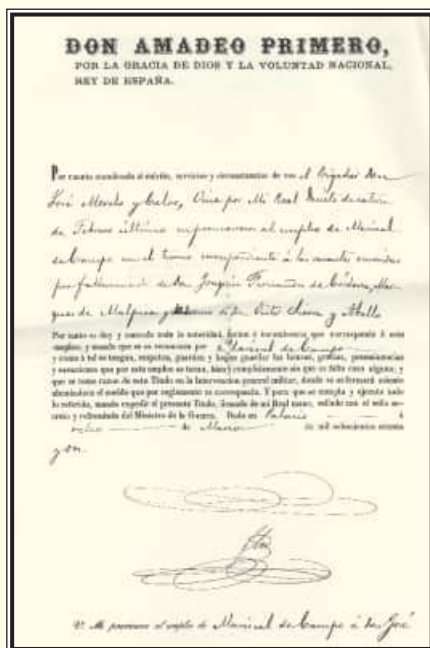 DON AMADEO PRIMERO,
POR LA GRACIA DE DIOS Y LA VOLUNTAD NACIONAL,
REY DE ESPAÑA.
Por cuanto atendiendo al mérito, servicios y circunstancias de vos el Brigadier Don
José Merelo y Calvo, Vine por Mi Real Decreto de catorce
de Febrero último en promoveros al empleo de Mariscal
de Campo en el turno correspondiente á las vacantes ocurridas
por fallecimiento de Don Joaquín Fernández de Córdova, Mar
ques de Malpica y
Por tanto os doy y concedo toda la autoridad, que corresponde á este
empleo; y mando que se os reconozca por Mariscal de Campo
y como á tal se tengan, respeten, guarden y hagan guardar las honras, gracias, preeminencias
y exenciones que por este empleo os tocan, bien y cumplidamente sin que os falte cosa alguna; y
que se tome razon de este Título en la Intervencion general militar, donde se os formará asiento
el sueldo que por reglamento os corresponda. Y para que se cumpla y ejecute todo
lo referido, mando expedir el presente Título, firmado de mi Real mano, sellado con el sello se-
creto y refrendado del Ministro de la Guerra. Dado en Palacio á
ocho de Marzo de mil ochocientos setenta
y dos.
V. M. promueve al empleo de Mariscal de Campo á Don José